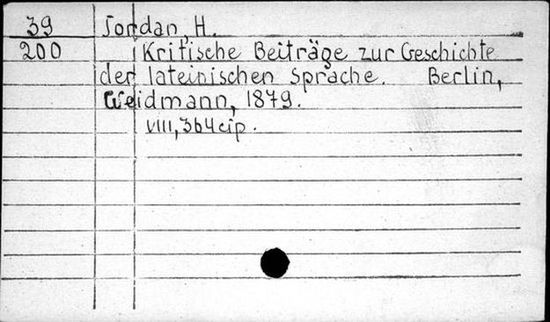 39 Jordan, H.
200 Kritische Beiträge zur Geschichte
der lateinischen Sprache. Berlin,
Weidmann, 1879.
VIII, 364 p.